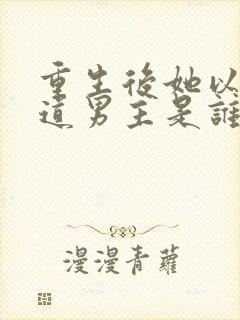 重生後她以
道男主是誰
漫漫青蘿